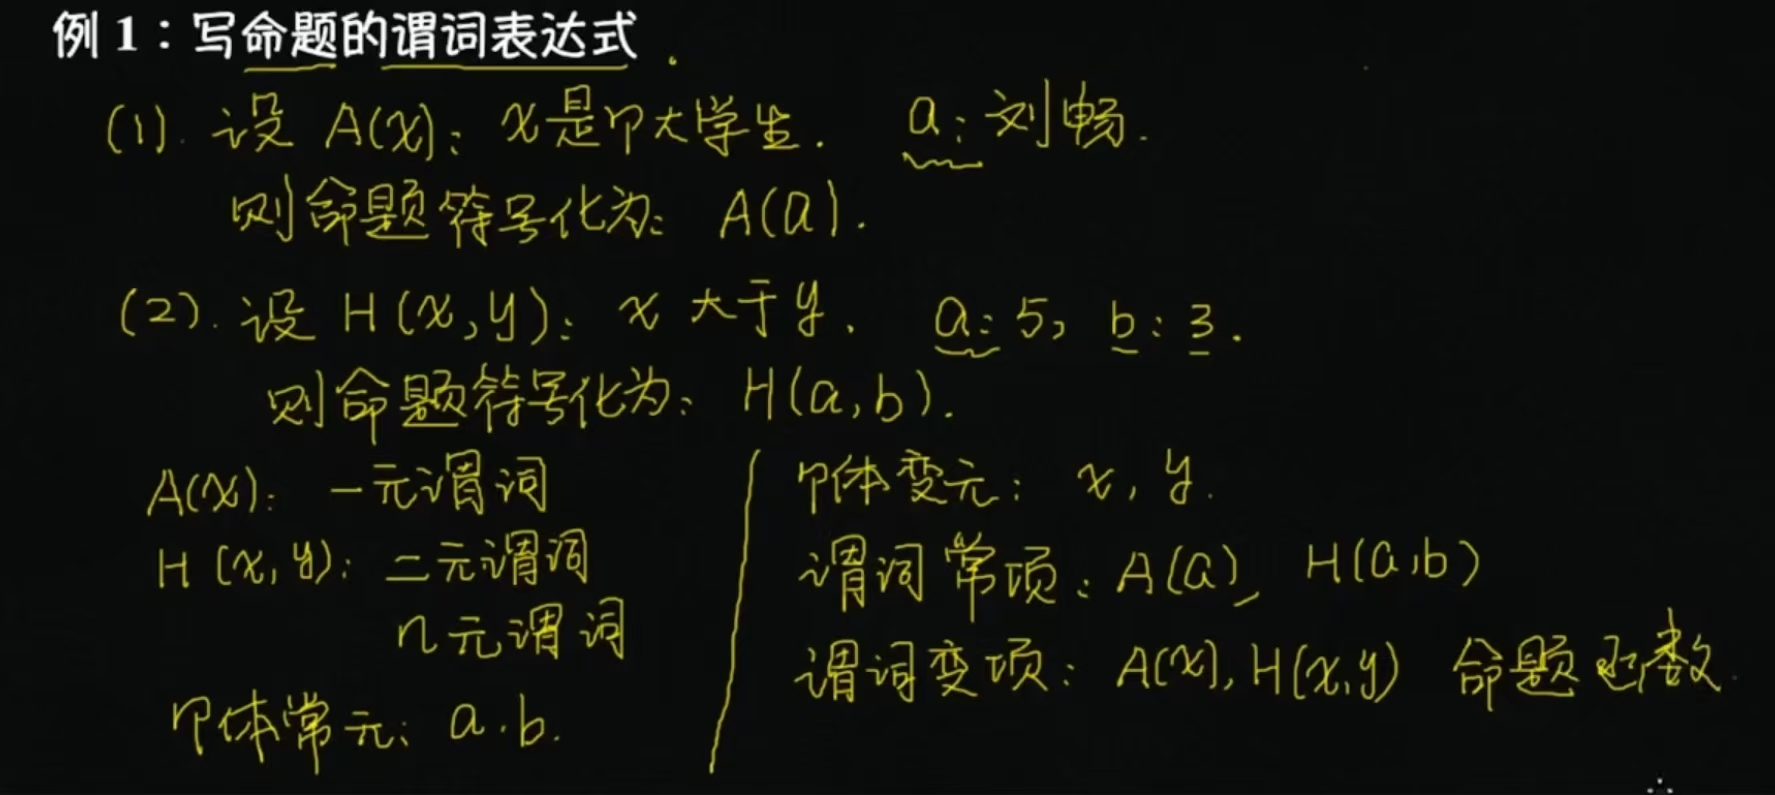 例 1：写命题的谓词表达式.
(1). 设 A(x)：x是个大学生.  a：刘畅.
则命题符号化为：A(a).
(2). 设 H(x,y)：x 大于 y.  a：5，b：3.
则命题符号化为：H(a,b).
A(x)：一元谓词
H(x,y)：二元谓词
n元谓词
个体常元：a.b.
个体变元：x, y.
谓词常项：A(a), H(a,b)
谓词变项：A(x), H(x,y) 命题函数.